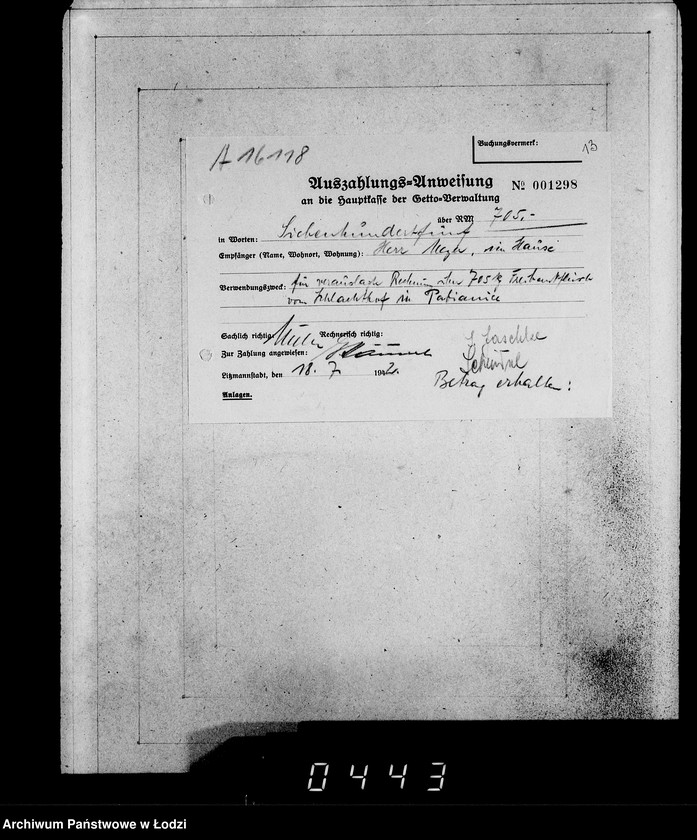 A 16118
Buchungsvermerk:
13
Auszahlungs-Anweisung
№ 001298
an die Hauptkasse der Getto-Verwaltung
über RM 705,-
in Worten: Siebenhundertfünf
Empfänger (Name, Wohnort, Wohnung): Herr Meyer, im Hause
Verwendungszweck: für Rechnung über 705 kg
vom Schlachthof in Pabianice
Sachlich richtig: Rechnerisch richtig:
Zur Zahlung angewiesen:
Litzmannstadt, den 18. 7. 1942.
Betrag erhalten:
Anlagen.
0443
Archiwum Państwowe w Łodzi